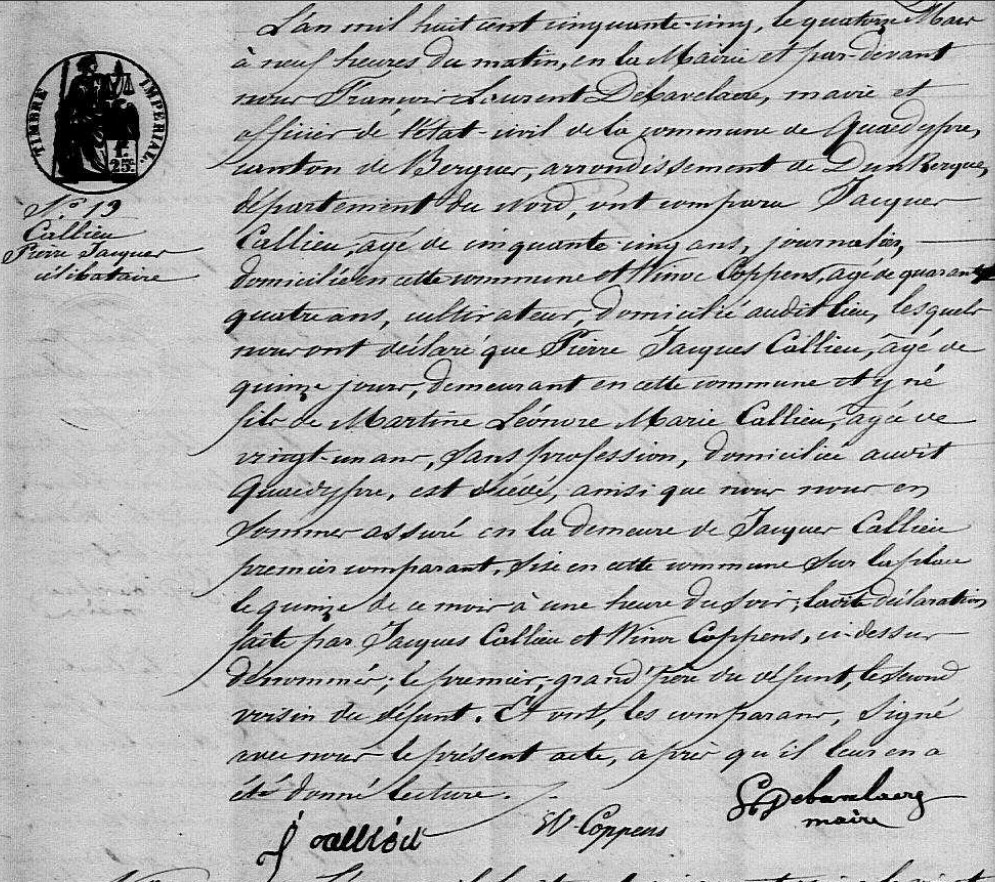 TIMBRE IMPERIAL
1F.
25C.
N.° 19
Callieu
Pierre Jacques
célibataire
L'an mil huit cent cinquante-cinq, le quatorze Mars
à neuf heures du matin, en la Mairie et par-devant
nous François Laurent Debavelaere, maire et
officier de l'état-civil de la commune de Quaedypre,
canton de Bergues, arrondissement de Dunkerque,
département du Nord, ont comparu Jacques
Callieu, âgé de cinquante-cinq ans, journalier,
domicilié en cette commune et Winoc Coppens, âgé de quarante
quatre ans, cultivateur, domicilié audit lieu, lesquels
nous ont déclaré que Pierre Jacques Callieu, âgé de
quinze jours, demeurant en cette commune et y né
fils de Martine Léonore Marie Callieu, âgée de
vingt-un ans, sans profession, domiciliée audit
Quaedypre, est décédé, ainsi que nous nous en
sommes assuré en la demeure de Jacques Callieu
premier comparant, sise en cette commune sur la place
le quinze de ce mois à une heure du soir; ladite déclaration
faite par Jacques Callieu et Winoc Coppens, ci-dessus
dénommés; le premier, grand'père du défunt, le second
voisin du défunt. Et ont, les comparans, signé
avec nous le présent acte, après qu'il leur en a
été donné lecture.
J Callieu
W Coppens
Debavelaere
maire